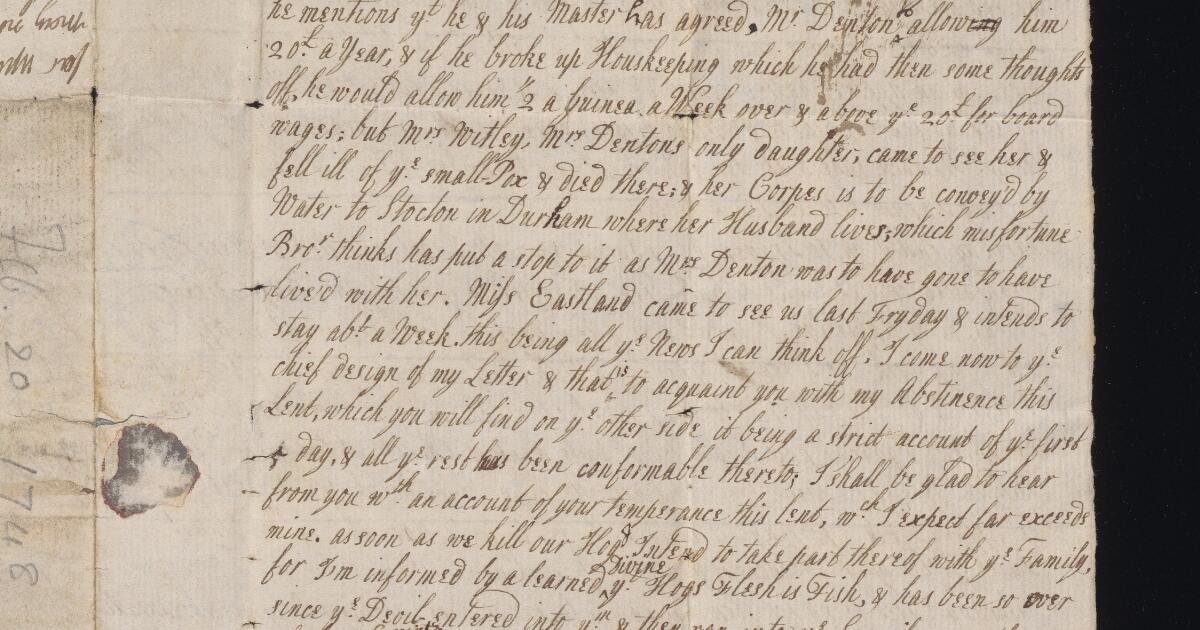 he mentions yt he & his Master has agreed, Mr Denton to allowing him
20£ a Year, & if he broke up Houskeeping which he had then some thoughts
off, he would allow him 1/2 a Guinea a Week over & above ye 20£ for board
wages; but Mrs Witley, Mrs Dentons only daughter, came to see her &
fell ill of ye small-Pox & died there; & her Corpes is to be convey'd by
Water to Stocton in Durham where her Husband lives; which misfortune
Bror thinks has put a stop to it as Mrs Denton was to have gone to have
live'd with her. Miss Eastland came to see us last Fryday & intends to
stay abt a Week. this being all ye News I can think off, I come now to ye
chief design of my Letter & that is to acquaint you with my Abstinence this
Lent, which you will find on ye other side it being a strict account of ye first
day, & all ye rest has been conformable thereto; I shall be glad to hear
from you wth an account of your temperance this lent, wch I expect far exceeds
mine. as soon as we kill our Hog I Intend to take part thereof with ye Family,
for I'm informed by a learned Divine yt Hogs Flesh is Fish, & has been so ever
since ye Devil entered into ym & they ran into ye
746. 20 1748